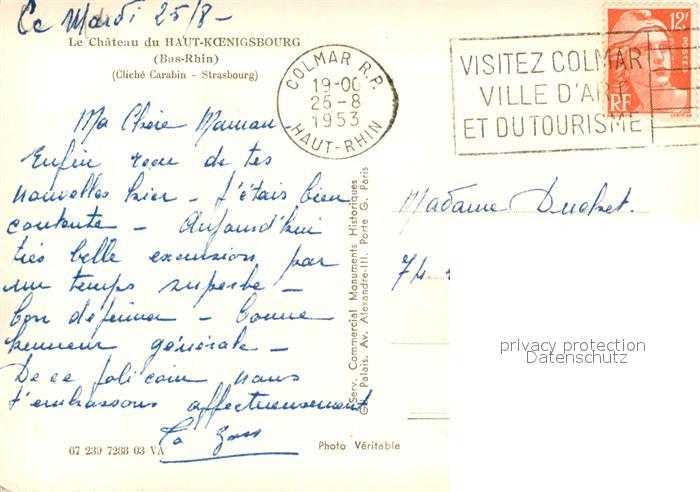 Ce Mardi 25/8-
Le Château du HAUT-KŒNIGSBOURG
(Bas-Rhin)
(Cliché Carabin - Strasbourg)
COLMAR R.P.
19-00
25-8
1953
HAUT-RHIN
VISITEZ COLMAR
VILLE D'ART
ET DU TOURISME
12F
POSTES
RF
Ma Chère Maman,
Enfin reçu de tes
nouvelles hier - J'étais bien
contente - Aujourd'hui
très belle excursion par
un temps superbe -
bon déjeuner - bonne
humeur générale -
De ce joli coin nous
t'embrassons affectueusement
Serv. Commercial Monuments Historiques
Gd Palais. Av. Alexandre-III. Porte G. Paris
Madame
74
privacy protection
Datenschutz
67 239 7288 03 VA
Photo Véritable